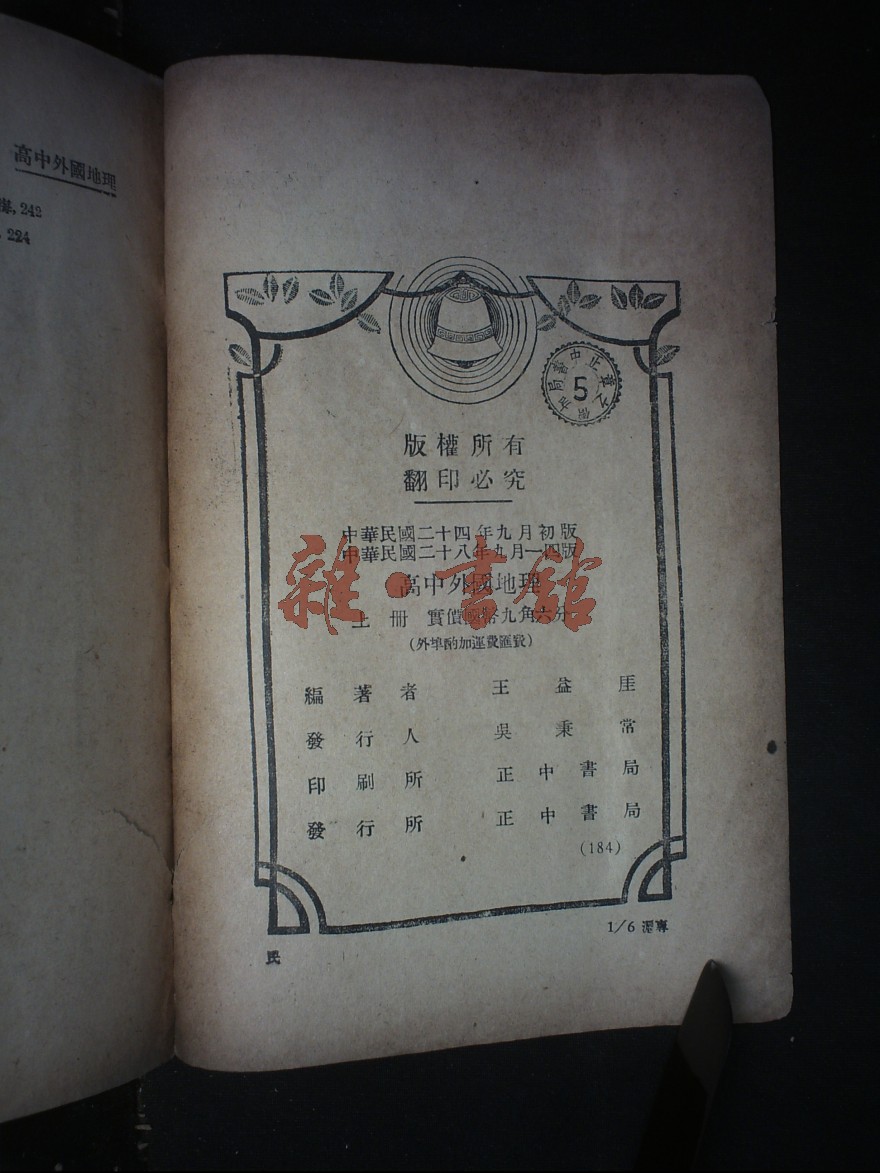 高中外國地理
242
224
5
版權所有
翻印必究
中華民國二十四年九月初版
中華民國二十八年九月一四版
高中外國地理
上冊 實價國幣九角六分
(外埠酌加運費匯費)
雜·書館
編著者 王益厓
發行人 吳秉常
印刷所 正中書局
發行所 正中書局
(184)
1/6 滬專
民